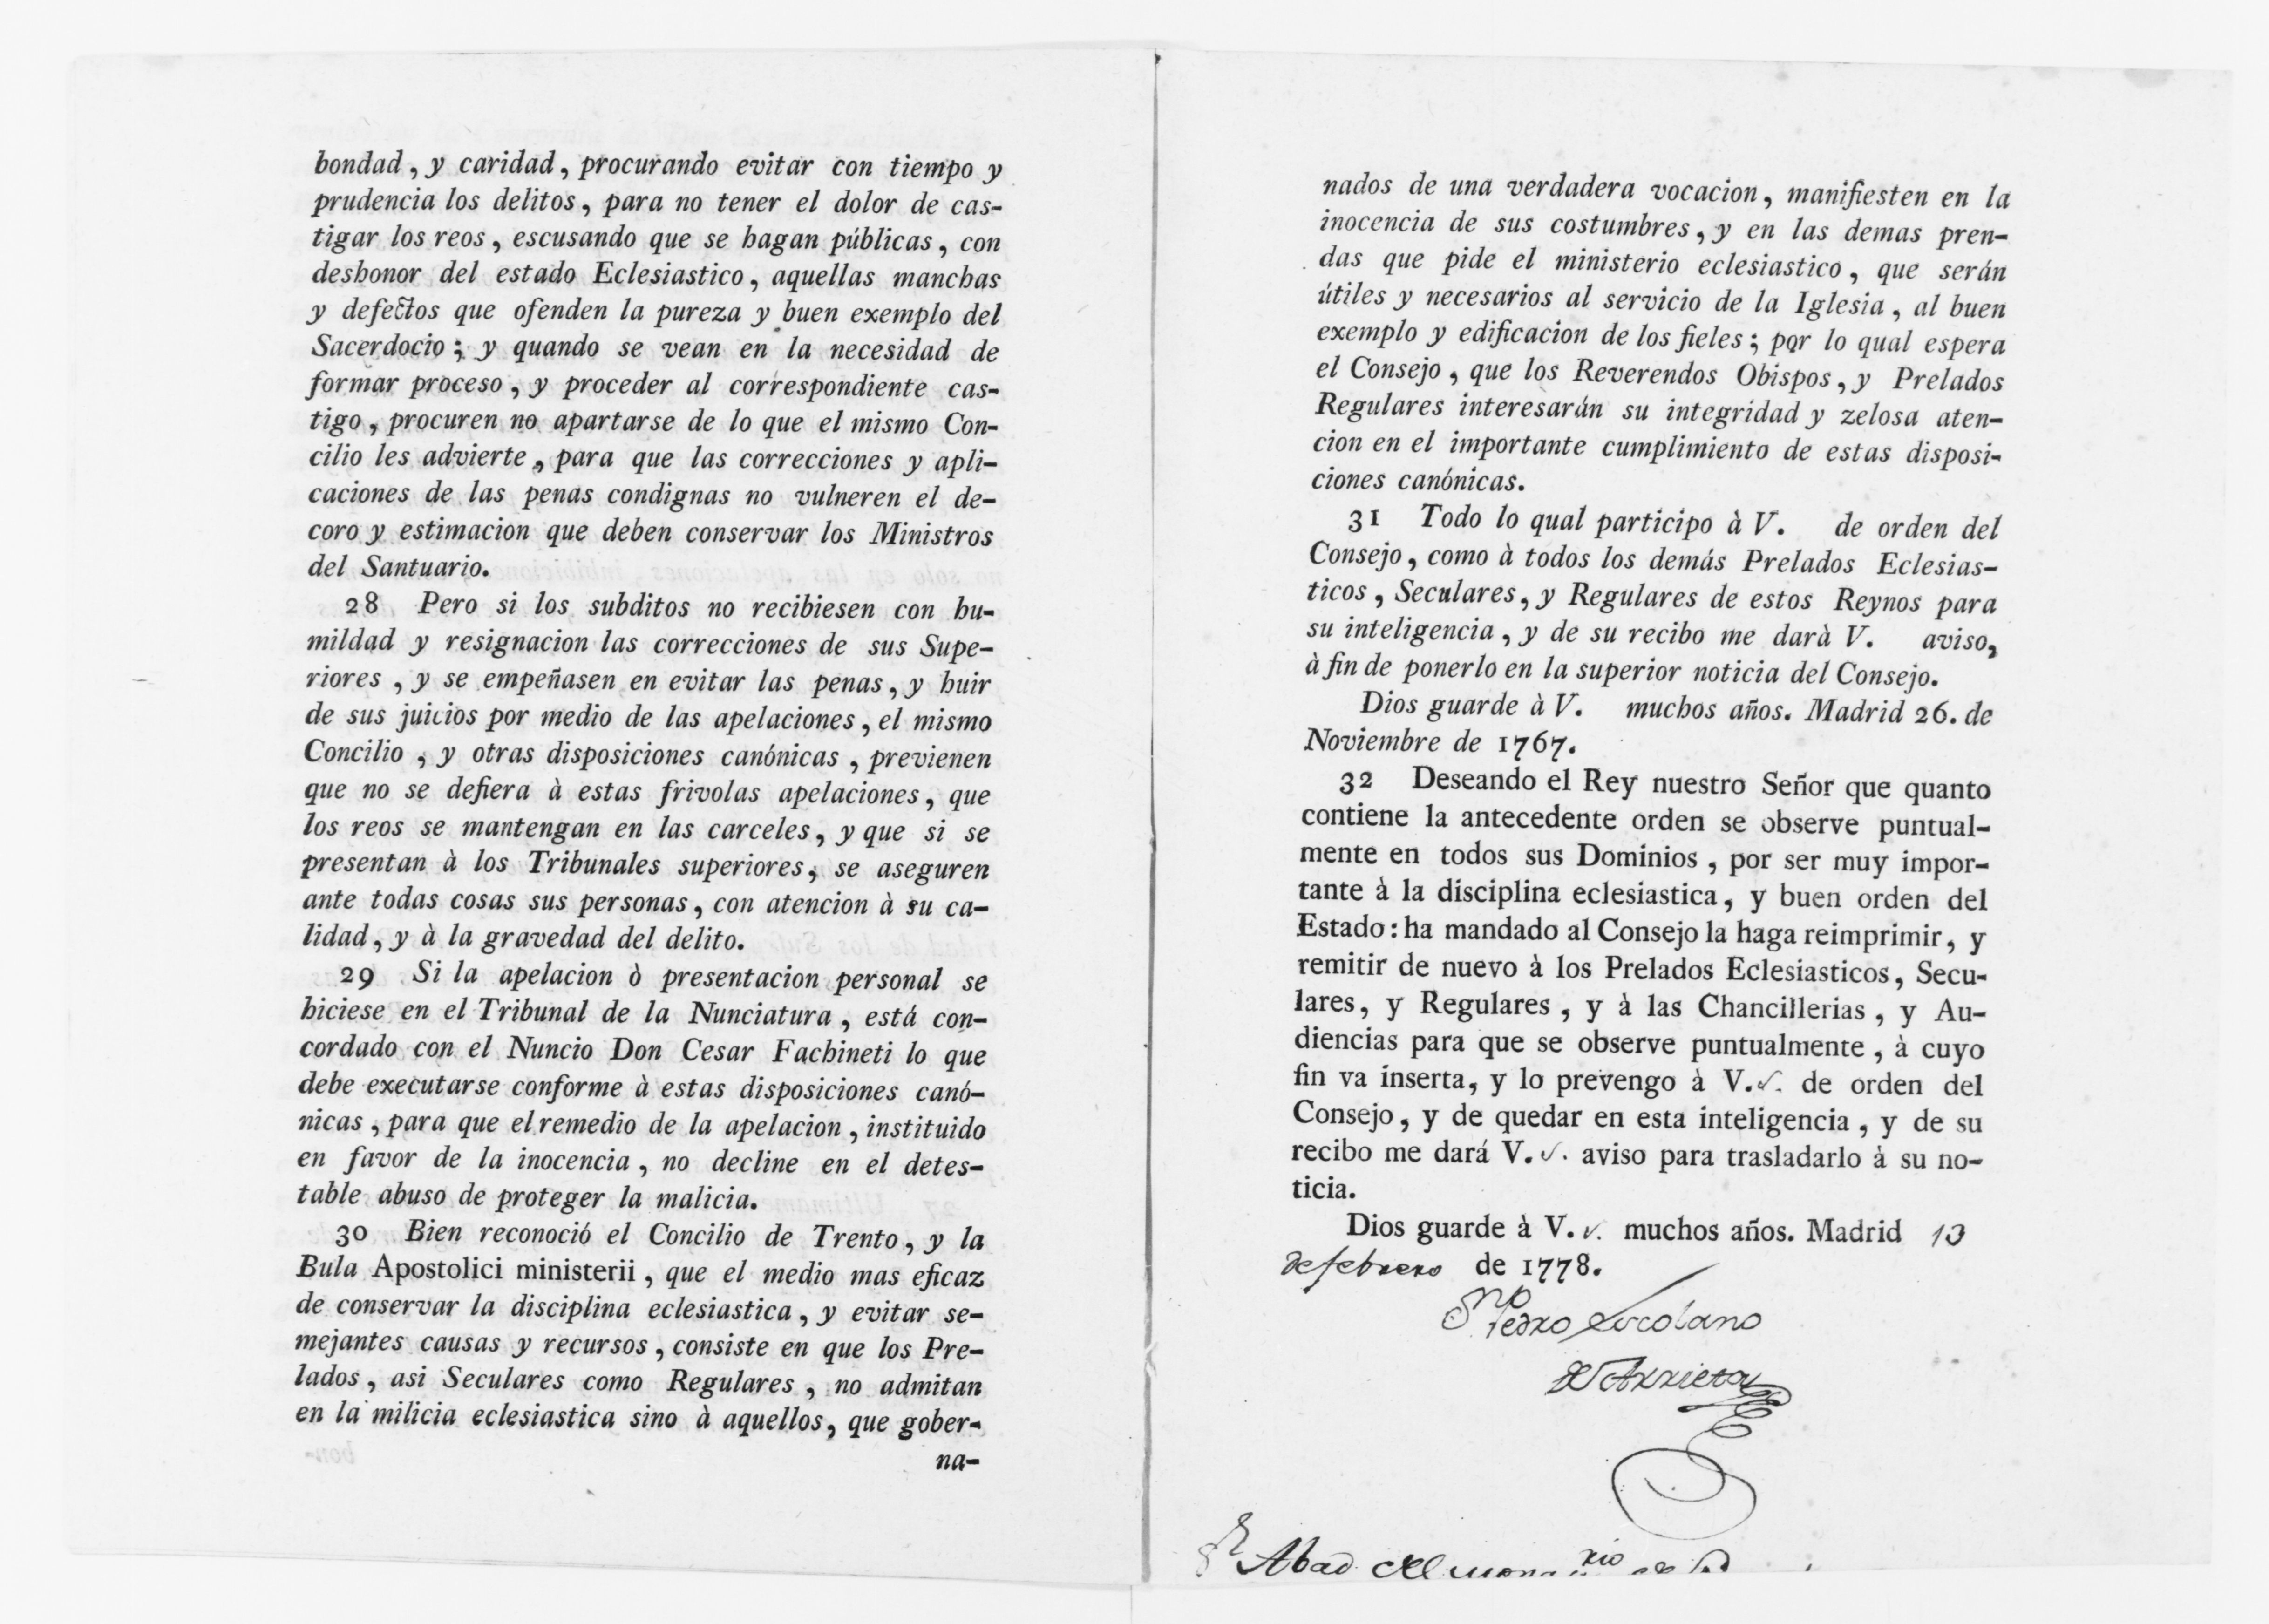 bondad, y caridad, procurando evitar con tiempo y
prudencia los delitos, para no tener el dolor de cas-
tigar los reos, escusando que se hagan públicas, con
deshonor del estado Eclesiastico, aquellas manchas
y defectos que ofenden la pureza y buen exemplo del
Sacerdocio; y quando se vean en la necesidad de
formar proceso, y proceder al correspondiente cas-
tigo, procuren no apartarse de lo que el mismo Con-
cilio les advierte, para que las correcciones y apli-
caciones de las penas condignas no vulneren el de-
coro y estimacion que deben conservar los Ministros
del Santuario.
28 Pero si los subditos no recibiesen con hu-
mildad y resignacion las correcciones de sus Supe-
riores, y se empeñasen en evitar las penas, y huir
de sus juicios por medio de las apelaciones, el mismo
Concilio, y otras disposiciones canónicas, previenen
que no se defiera à estas frivolas apelaciones, que
los reos se mantengan en las carceles, y que si se
presentan à los Tribunales superiores, se aseguren
ante todas cosas sus personas, con atencion à su ca-
lidad, y à la gravedad del delito.
29 Si la apelacion ò presentacion personal se
hiciese en el Tribunal de la Nunciatura, está con-
cordado con el Nuncio Don Cesar Fachineti lo que
debe executarse conforme à estas disposiciones canó-
nicas, para que el remedio de la apelacion, instituido
en favor de la inocencia, no decline en el detes-
table abuso de proteger la malicia.
30 Bien reconoció el Concilio de Trento, y la
Bula Apostolici ministerii, que el medio mas eficaz
de conservar la disciplina eclesiastica, y evitar se-
mejantes causas y recursos, consiste en que los Pre-
lados, asi Seculares como Regulares, no admitan
en la milicia eclesiastica sino à aquellos, que gober-
na-
nados de una verdadera vocacion, manifiesten en la
inocencia de sus costumbres, y en las demas pren-
das que pide el ministerio eclesiastico, que serán
útiles y necesarios al servicio de la Iglesia, al buen
exemplo y edificacion de los fieles; por lo qual espera
el Consejo, que los Reverendos Obispos, y Prelados
Regulares interesarán su integridad y zelosa aten-
cion en el importante cumplimiento de estas disposi-
ciones canónicas.
31 Todo lo qual participo à V. de orden del
Consejo, como à todos los demás Prelados Eclesias-
ticos, Seculares, y Regulares de estos Reynos para
su inteligencia, y de su recibo me darà V. aviso,
à fin de ponerlo en la superior noticia del Consejo.
Dios guarde à V. muchos años. Madrid 26. de
Noviembre de 1767.
32 Deseando el Rey nuestro Señor que quanto
contiene la antecedente orden se observe puntual-
mente en todos sus Dominios, por ser muy impor-
tante à la disciplina eclesiastica, y buen orden del
Estado: ha mandado al Consejo la haga reimprimir, y
remitir de nuevo à los Prelados Eclesiasticos, Secu-
lares, y Regulares, y à las Chancillerias, y Au-
diencias para que se observe puntualmente, à cuyo
fin va inserta, y lo prevengo à V. S. de orden del
Consejo, y de quedar en esta inteligencia, y de su
recibo me dará V. S. aviso para trasladarlo à su no-
ticia.
Dios guarde à V. S. muchos años. Madrid 13
de febrero de 1778.
Pedro Escolano
de Arrieta
Abad del